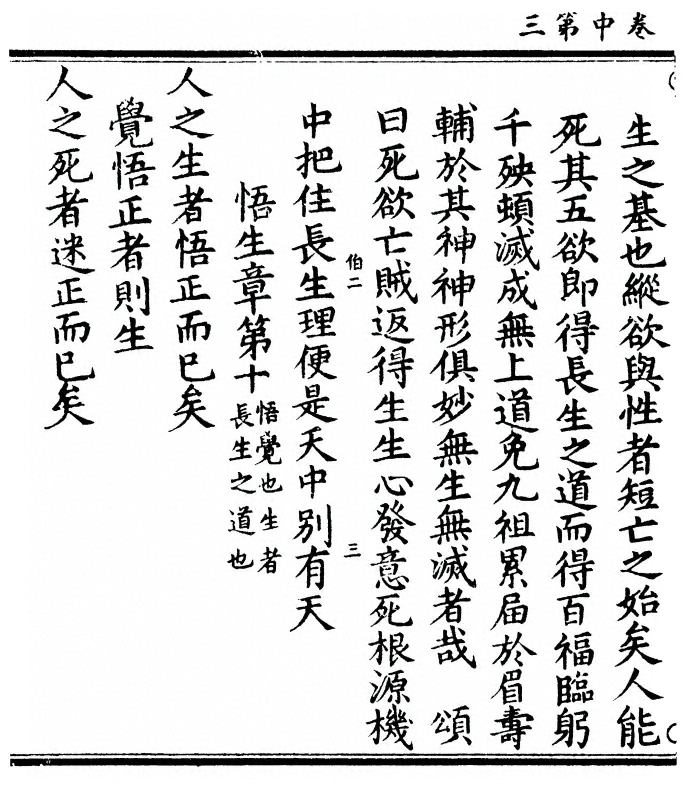 卷中第三
生之基也縱欲與性者短亡之始矣人能
死其五欲即得長生之道而得百福臨躬
千殃頓滅成無上道免九祖累屆於眉壽
輔於其神神形俱妙無生無滅者哉　頌
曰死欲亡賊返得生生心發意死根源機
伯二　三
中把住長生理便是天中別有天
悟生章第十
悟覺也生者
長生之道也
人之生者悟正而已矣
覺悟正者則生
人之死者迷正而已矣